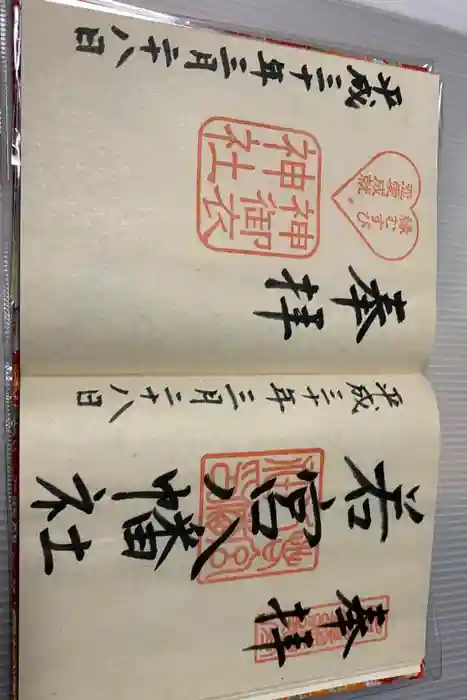 奉拝
若宮八幡社
平成三十年三月二十八日
奉拝
縁むすび
恋愛成就
神御衣
神社
平成三十年三月二十八日